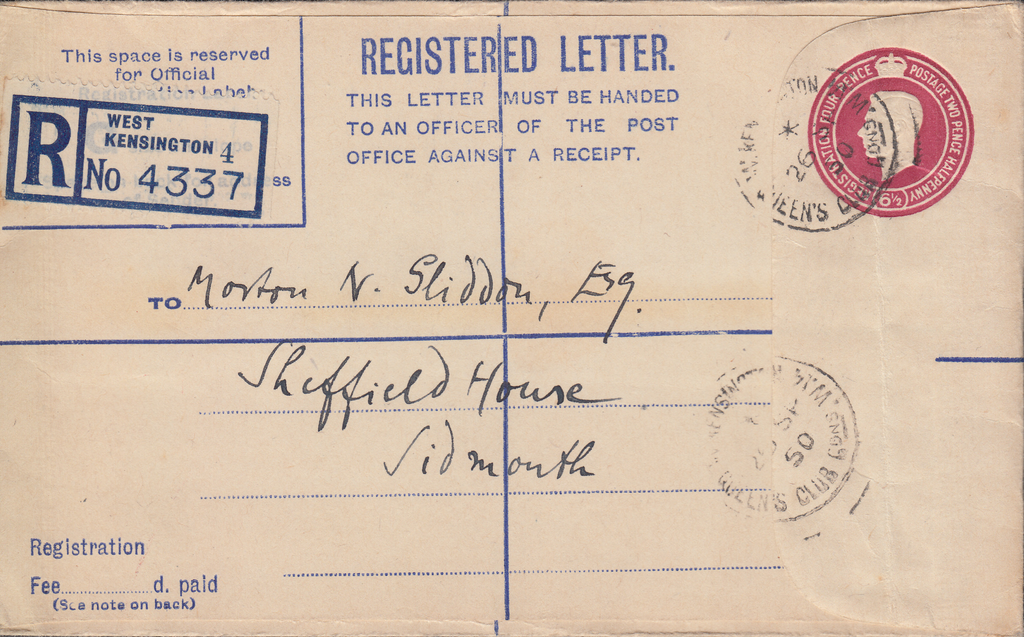 This space is reserved
for Official
Registration Label
R
WEST
KENSINGTON 4
No 4337
REGISTERED LETTER.
THIS LETTER MUST BE HANDED
TO AN OFFICER OF THE POST
OFFICE AGAINST A RECEIPT.
REGISTRATION FOUR PENCE POSTAGE TWO PENCE HALFPENNY
6½
26
QUEEN'S CLUB
TO Morton N. Gliddon, Esq.
Sheffield House
Sidmouth
KENSINGTON
50
QUEEN'S CLUB
Registration
Fee d. paid
(See note on back)